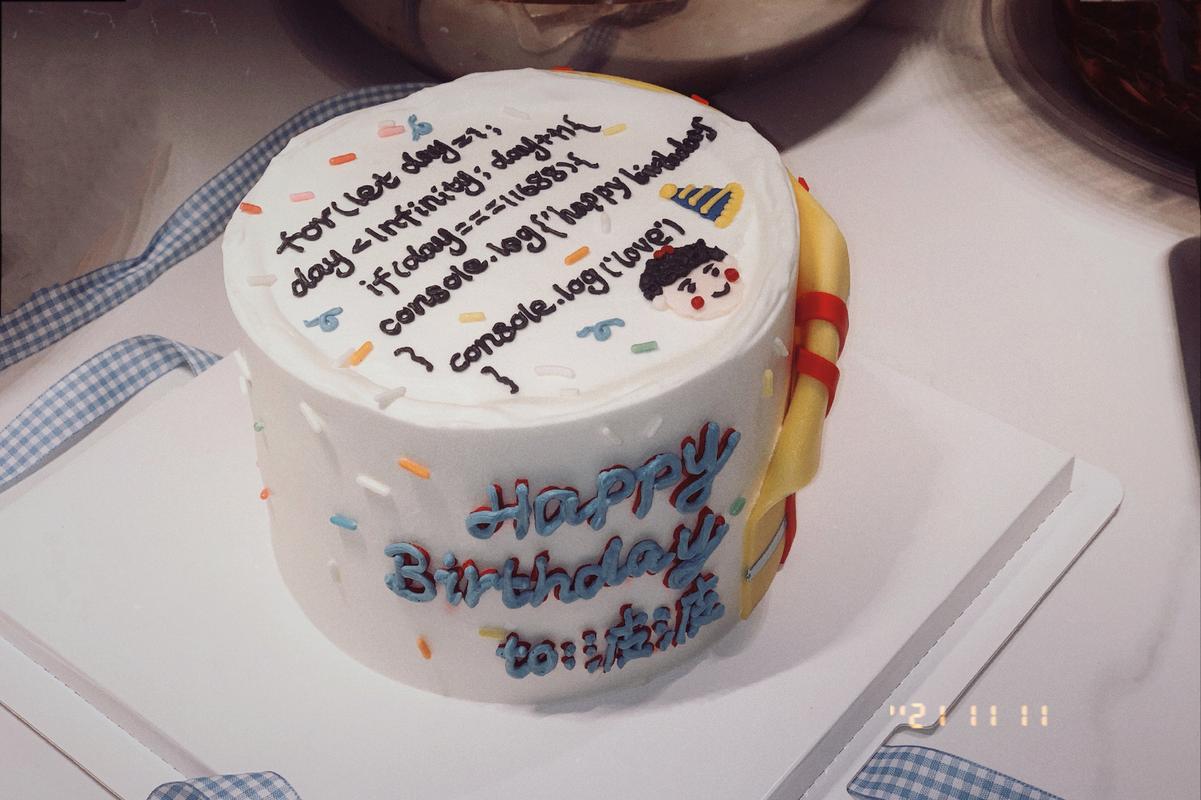 for(let day=1;
day<Infinity; day++){
if(day===11688){
console.log('happy birthday
} console.log('love')
}
Happy
Birthday
to:波波
"21 11 11